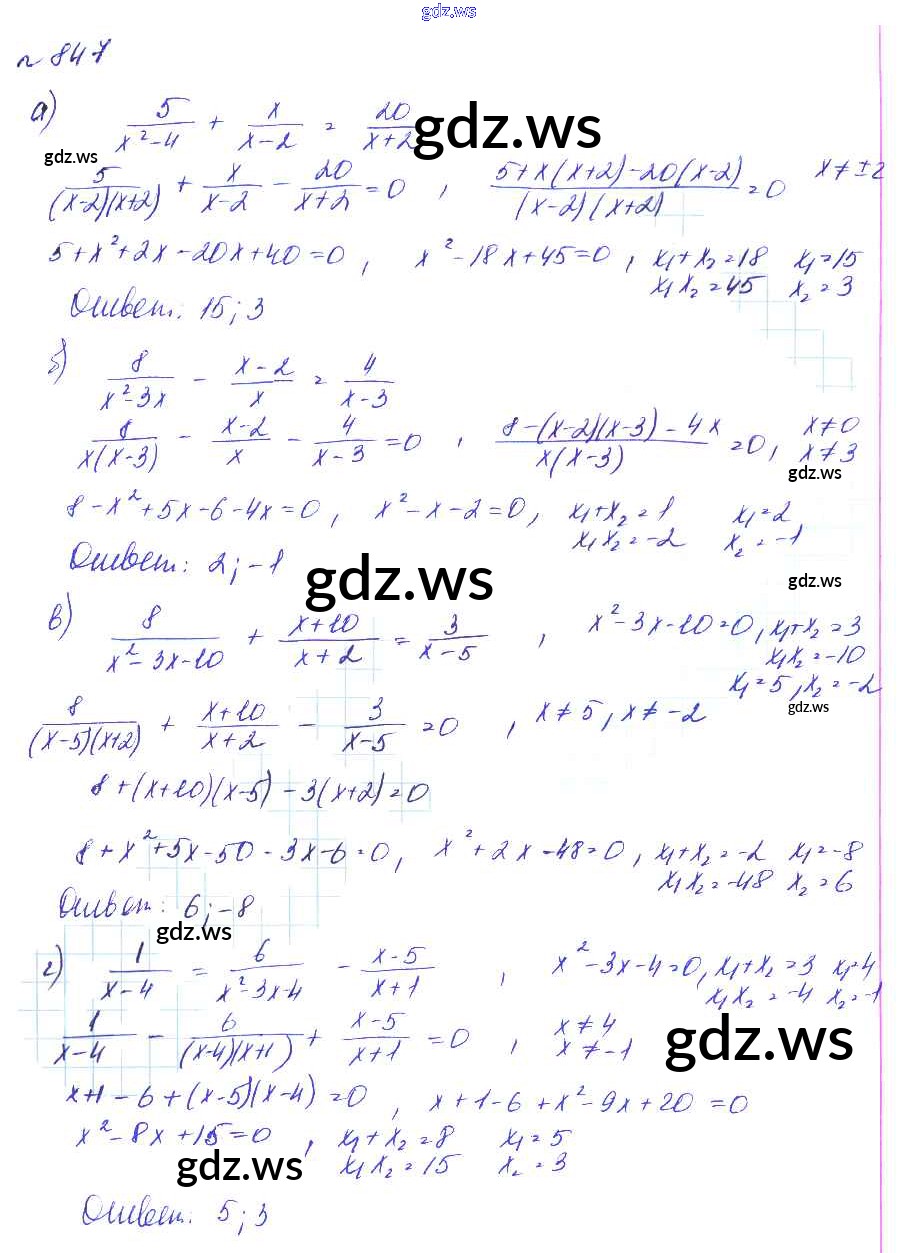 gdz.ws
№ 847
а) 5/(x²-4) + x/(x-2) = 20/(x+2) gdz.ws
gdz.ws
5/((x-2)(x+2)) + x/(x-2) - 20/(x+2) = 0 , (5+x(x+2)-20(x-2))/((x-2)(x+2)) = 0 x ≠ ±2
5+x²+2x-20x+40=0 , x²-18x+45=0 , x₁+x₂=18 x₁=15
x₁x₂=45 x₂=3
Ответ: 15; 3
б) 8/(x²-3x) - (x-2)/x = 4/(x-3)
8/(x(x-3)) - (x-2)/x - 4/(x-3) = 0 , (8-(x-2)(x-3)-4x)/(x(x-3)) = 0, x≠0
x≠3
gdz.ws
8-x²+5x-6-4x=0 , x²-x-2=0, x₁+x₂=1 x₁=2
x₁x₂=-2 x₂=-1
Ответ: 2; -1
gdz.ws gdz.ws
в) 8/(x²-3x-10) + (x+10)/(x+2) = 3/(x-5) , x²-3x-10=0, x₁+x₂=3
x₁x₂=-10
x₁=5, x₂=-2
gdz.ws
8/((x-5)(x+2)) + (x+10)/(x+2) - 3/(x-5) = 0 , x≠5, x≠-2
8+(x+10)(x-5)-3(x+2)=0
8+x²+5x-50-3x-6=0, x²+2x-48=0, x₁+x₂=-2 x₁=-8
x₁x₂=-48 x₂=6
Ответ: 6; -8
gdz.ws
г) 1/(x-4) = 6/(x²-3x-4) - (x-5)/(x+1) , x²-3x-4=0, x₁+x₂=3 x₁=4
x₁x₂=-4 x₂=-1
1/(x-4) - 6/((x-4)(x+1)) + (x-5)/(x+1) = 0 , x≠4
x≠-1
gdz.ws
x+1-6+(x-5)(x-4)=0 , x+1-6+x²-9x+20=0
x²-8x+15=0 , x₁+x₂=8 x₁=5
x₁x₂=15 x₂=3
gdz.ws
Ответ: 5; 3